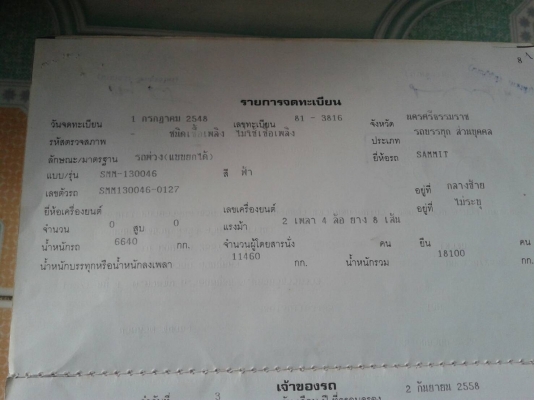 รายการจดทะเบียน
วันจดทะเบียน 1 กรกฎาคม 2548 เลขทะเบียน 81 - 3816 จังหวัด นครศรีธรรมราช
รหัสตรวจสภาพ - ชนิดเชื้อเพลิง ไม่ใช้เชื้อเพลิง ประเภท รถบรรทุก ส่วนบุคคล
ลักษณะ/มาตรฐาน รถพ่วง(แบบยกได้) ยี่ห้อรถ SAMMIT
แบบ/รุ่น SMM-130046 สี ฟ้า
เลขตัวรถ SMM130046-0127 อยู่ที่ กลางซ้าย
ยี่ห้อเครื่องยนต์ เลขเครื่องยนต์ อยู่ที่ ไม่ระบุ
จำนวน 0 สูบ 0 แรงม้า 2 เพลา 4 ล้อ ยาง 8 เส้น
น้ำหนักรถ 6640 กก. จำนวนผู้โดยสารนั่ง คน ยืน คน
น้ำหนักบรรทุกหรือน้ำหนักลงเพลา 11460 กก. น้ำหนักรวม 18100 กก.
เจ้าของรถ
3 2 กันยายน 2558